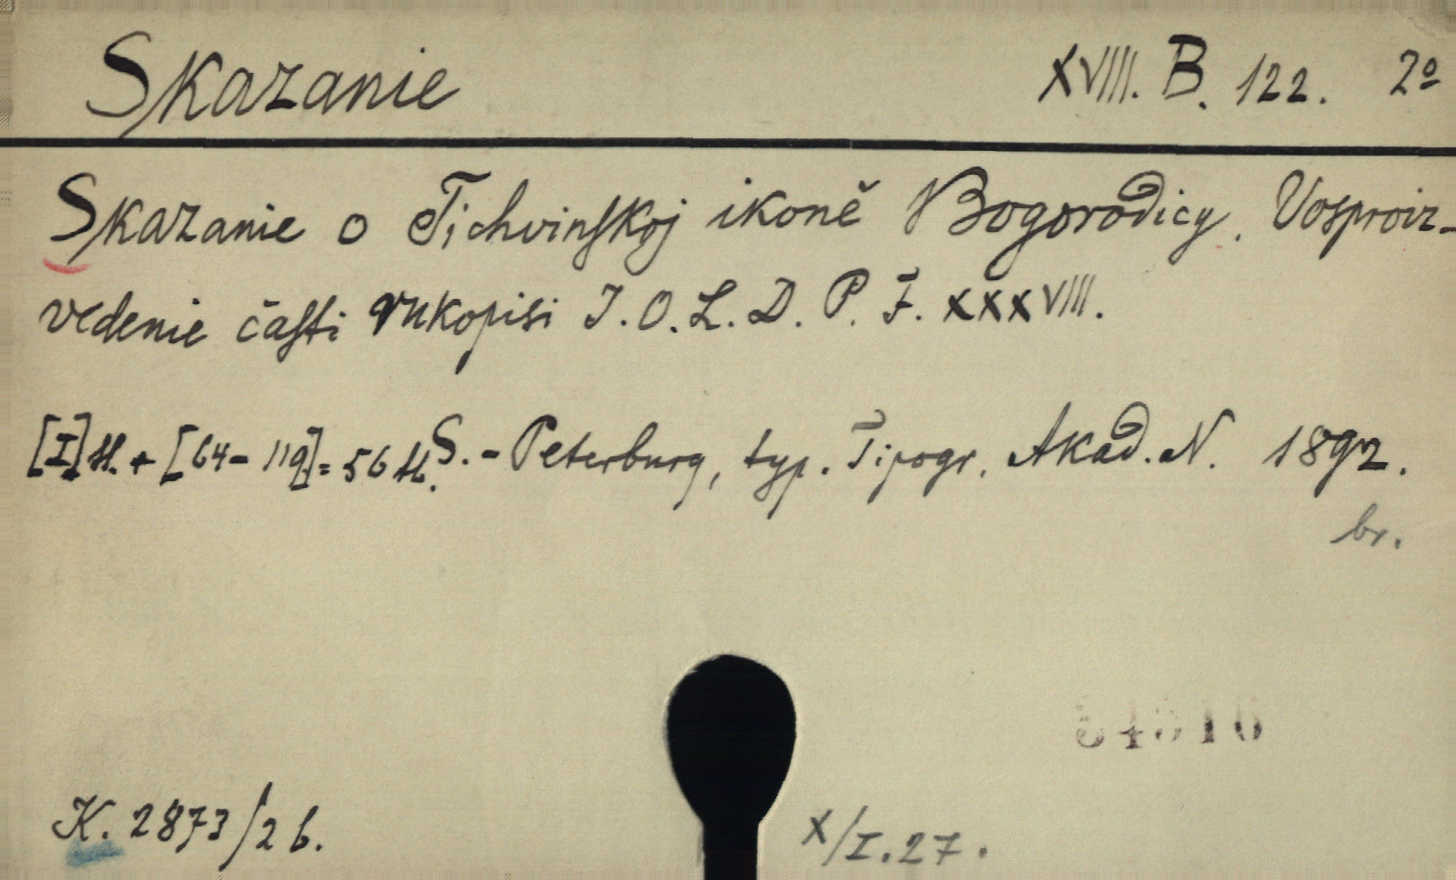 Skazanie XVIIII. B. 122. 2º
Skazanie o Tichvinskoj ikoně Bogorodicy. Vosproiz-
vedenie časti rukopisi I. O. L. D. P. F. XXXVIII.
[I] ll. + [64-119] = 56 ll. S.-Peterburg, typ. Tipogr. Akad. N. 1892.
br.
K. 2873/26.
X/I.27.